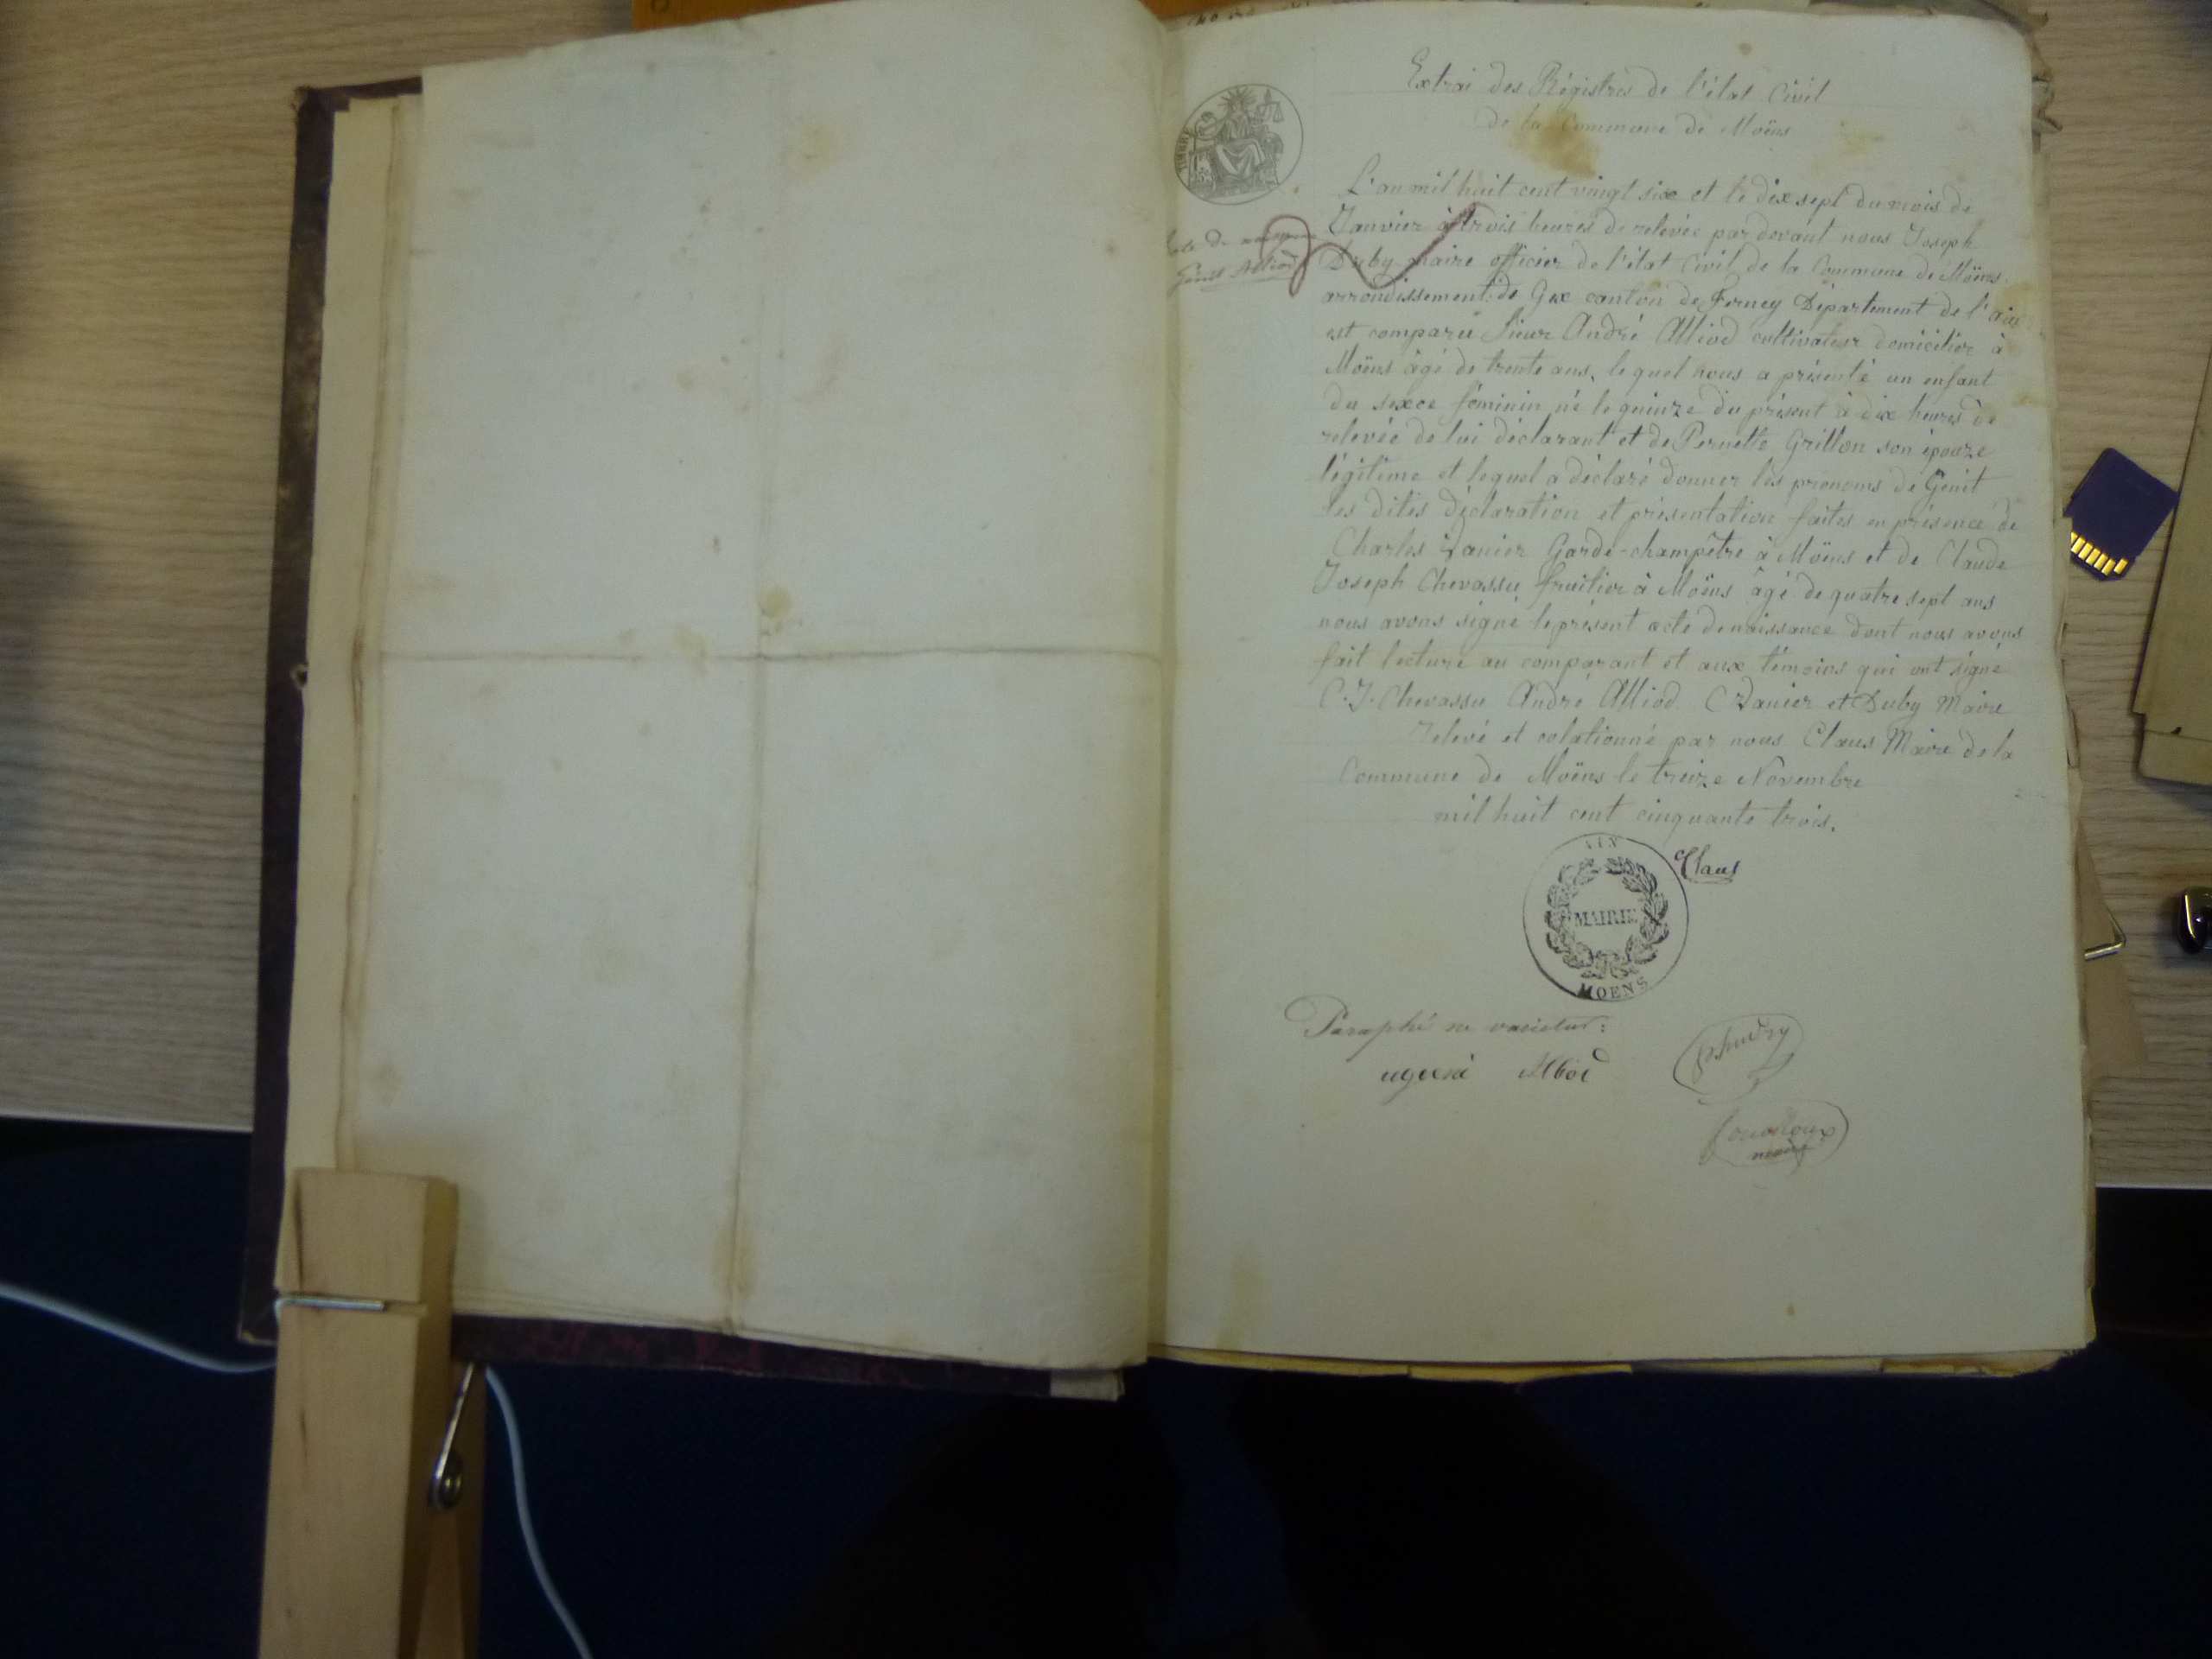 Extrai des Régistres de l'état Civil
de la Commune de Moëns
TIMBRE
L'an mil huit cent vingt six et le dix sept du mois de
Janvier à trois heures de relevée par devant nous Joseph
Duby maire officier de l'état Civil de la Commune de Moëns
arrondissement de Gex canton de Ferney Département de l'ain
est comparu sieur André Alliod cultivateur domicilier à
Moëns âgé de trente ans, le quel nous a présenté un enfant
du sexce féminin né le quinze du présent à dix heures de
relevée de lui déclarant et de Pernette Grillon son épouze
légitime et lequel a déclaré donner les prenoms de Génit
les dites déclaration et présentation faites en présence de
Charles Janier Garde-champêtre à Moëns et de Claude
Joseph Chevassu fruitier à Moëns âgé de quatre sept ans
nous avons signé le présent acte de naissance dont nous avons
fait lecture au comparant et aux témoins qui ont signé
C. J. Chevassu André Alliod C Janier et Duby Maire
Relevé et colationné par nous Claus Maire de la
Commune de Moëns le treize Novembre
mil huit cent cinquante trois.
Claus
AIN
MAIRIE
MOENS
Paraphé ne varietur: